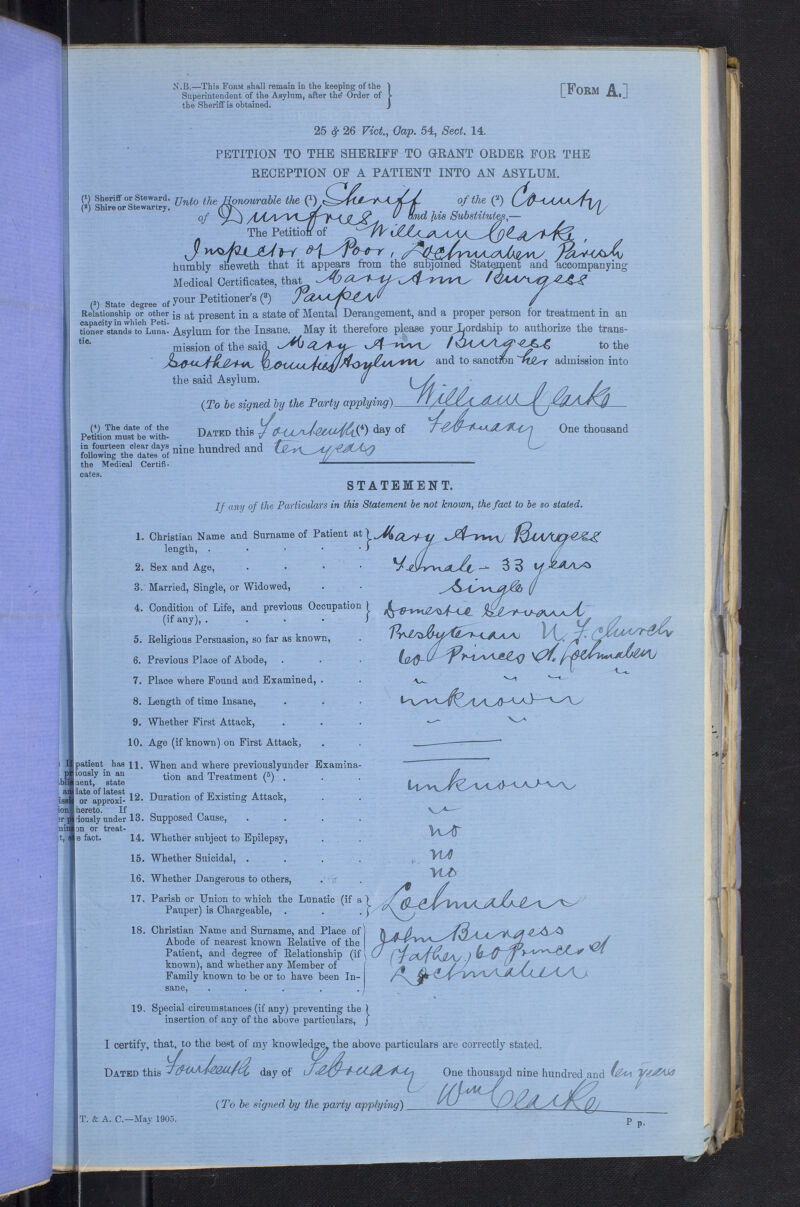 N.B.—This Form shall remain in the keeping of the
Superintendent of the Asylum, after the Order of
the Sheriff is obtained.
[Form A.]
25 & 26 Vict., Cap. 54, Sect. 14.
PETITION TO THE SHERIFF TO GRANT ORDER FOR THE
RECEPTION OF A PATIENT INTO AN ASYLUM.
(1) Sheriff or Steward.
(2) Shire or Stewartry.
Unto the Honourable the (1) Sheriff of the (2) County
of Dumfries and his Substitutes,—
The Petition of William Clarke
Inspector of Poor, Lochmaben Parish
humbly sheweth that it appears from the subjoined Statement and accompanying
Medical Certificates, that Mary Ann Burgess
(3) State degree of
Relationship or other
capacity in which Peti-
tioner stands to Luna-
tic.
your Petitioner's (3) Pauper
is at present in a state of Mental Derangement, and a proper person for treatment in an
Asylum for the Insane. May it therefore please your Lordship to authorize the trans-
mission of the said Mary Ann Burgess to the
Southern Counties Asylum and to sanction her admission into
the said Asylum.
(To be signed by the Party applying) William Clarke
(4) The date of the
Petition must be with-
in fourteen clear days
following the dates of
the Medical Certifi-
cates.
Dated this Fourteenth (4) day of February One thousand
nine hundred and ten years
STATEMENT.
If any of the Particulars in this Statement be not known, the fact to be so stated.
1. Christian Name and Surname of Patient at
length, . . . . . Mary Ann Burgess
2. Sex and Age, . . . . Female – 33 years
3. Married, Single, or Widowed, . . Single
4. Condition of Life, and previous Occupation
(if any), . . . . . Domestic Servant
5. Religious Persuasion, so far as known, . Presbyterian U. F. church
6. Previous Place of Abode, . . . 60 Princes St. Lochmaben
7. Place where Found and Examined, . . " " " "
8. Length of time Insane, . . . unknown
9. Whether First Attack, . . . " "
10. Age (if known) on First Attack, . . —
patient has
iously in an
ment, state
date of latest
or approxi-
hereto. If
iously under
on or treat-
e fact.
11. When and where previously under Examina-
tion and Treatment (5) . . . —
12. Duration of Existing Attack, . . unknown
13. Supposed Cause, . . . . "
14. Whether subject to Epilepsy, . . no
15. Whether Suicidal, . . . . no
16. Whether Dangerous to others, . . no
17. Parish or Union to which the Lunatic (if a
Pauper) is Chargeable, . . . Lochmaben
18. Christian Name and Surname, and Place of
Abode of nearest known Relative of the
Patient, and degree of Relationship (if
known), and whether any Member of
Family known to be or to have been In-
sane, . . . . . .
John Burgess
(Father) 60 Princes St
Lochmaben
19. Special circumstances (if any) preventing the
insertion of any of the above particulars,
I certify, that, to the best of my knowledge, the above particulars are correctly stated.
Dated this Fourteenth day of February One thousand nine hundred and ten years
(To be signed by the party applying) Wm Clarke
T. & A. C.—May 1905.
P p.